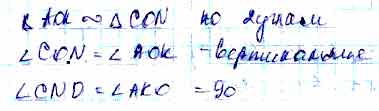 ∠ AOK ∾ △ CON по двум
∠ CON = ∠ AOK - вертикальные
∠ CNO = ∠ AKO = 90